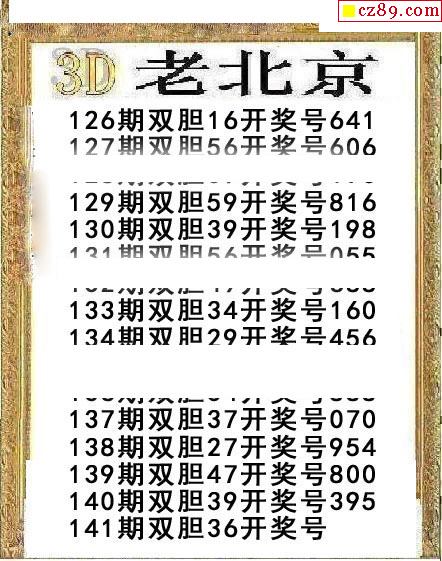 cz89.com
3D 老北京
126期双胆16开奖号641
127期双胆56开奖号606
129期双胆59开奖号816
130期双胆39开奖号198
131期双胆56开奖号055
133期双胆34开奖号160
134期双胆29开奖号456
137期双胆37开奖号070
138期双胆27开奖号954
139期双胆47开奖号800
140期双胆39开奖号395
141期双胆36开奖号